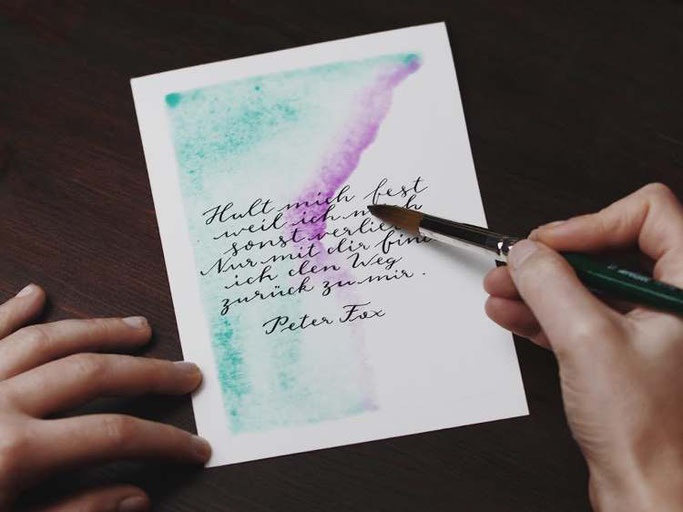 Halt mich fest
weil ich mich
sonst verlier
Nur mit dir find
ich den Weg
zurück zu mir.
Peter Fox